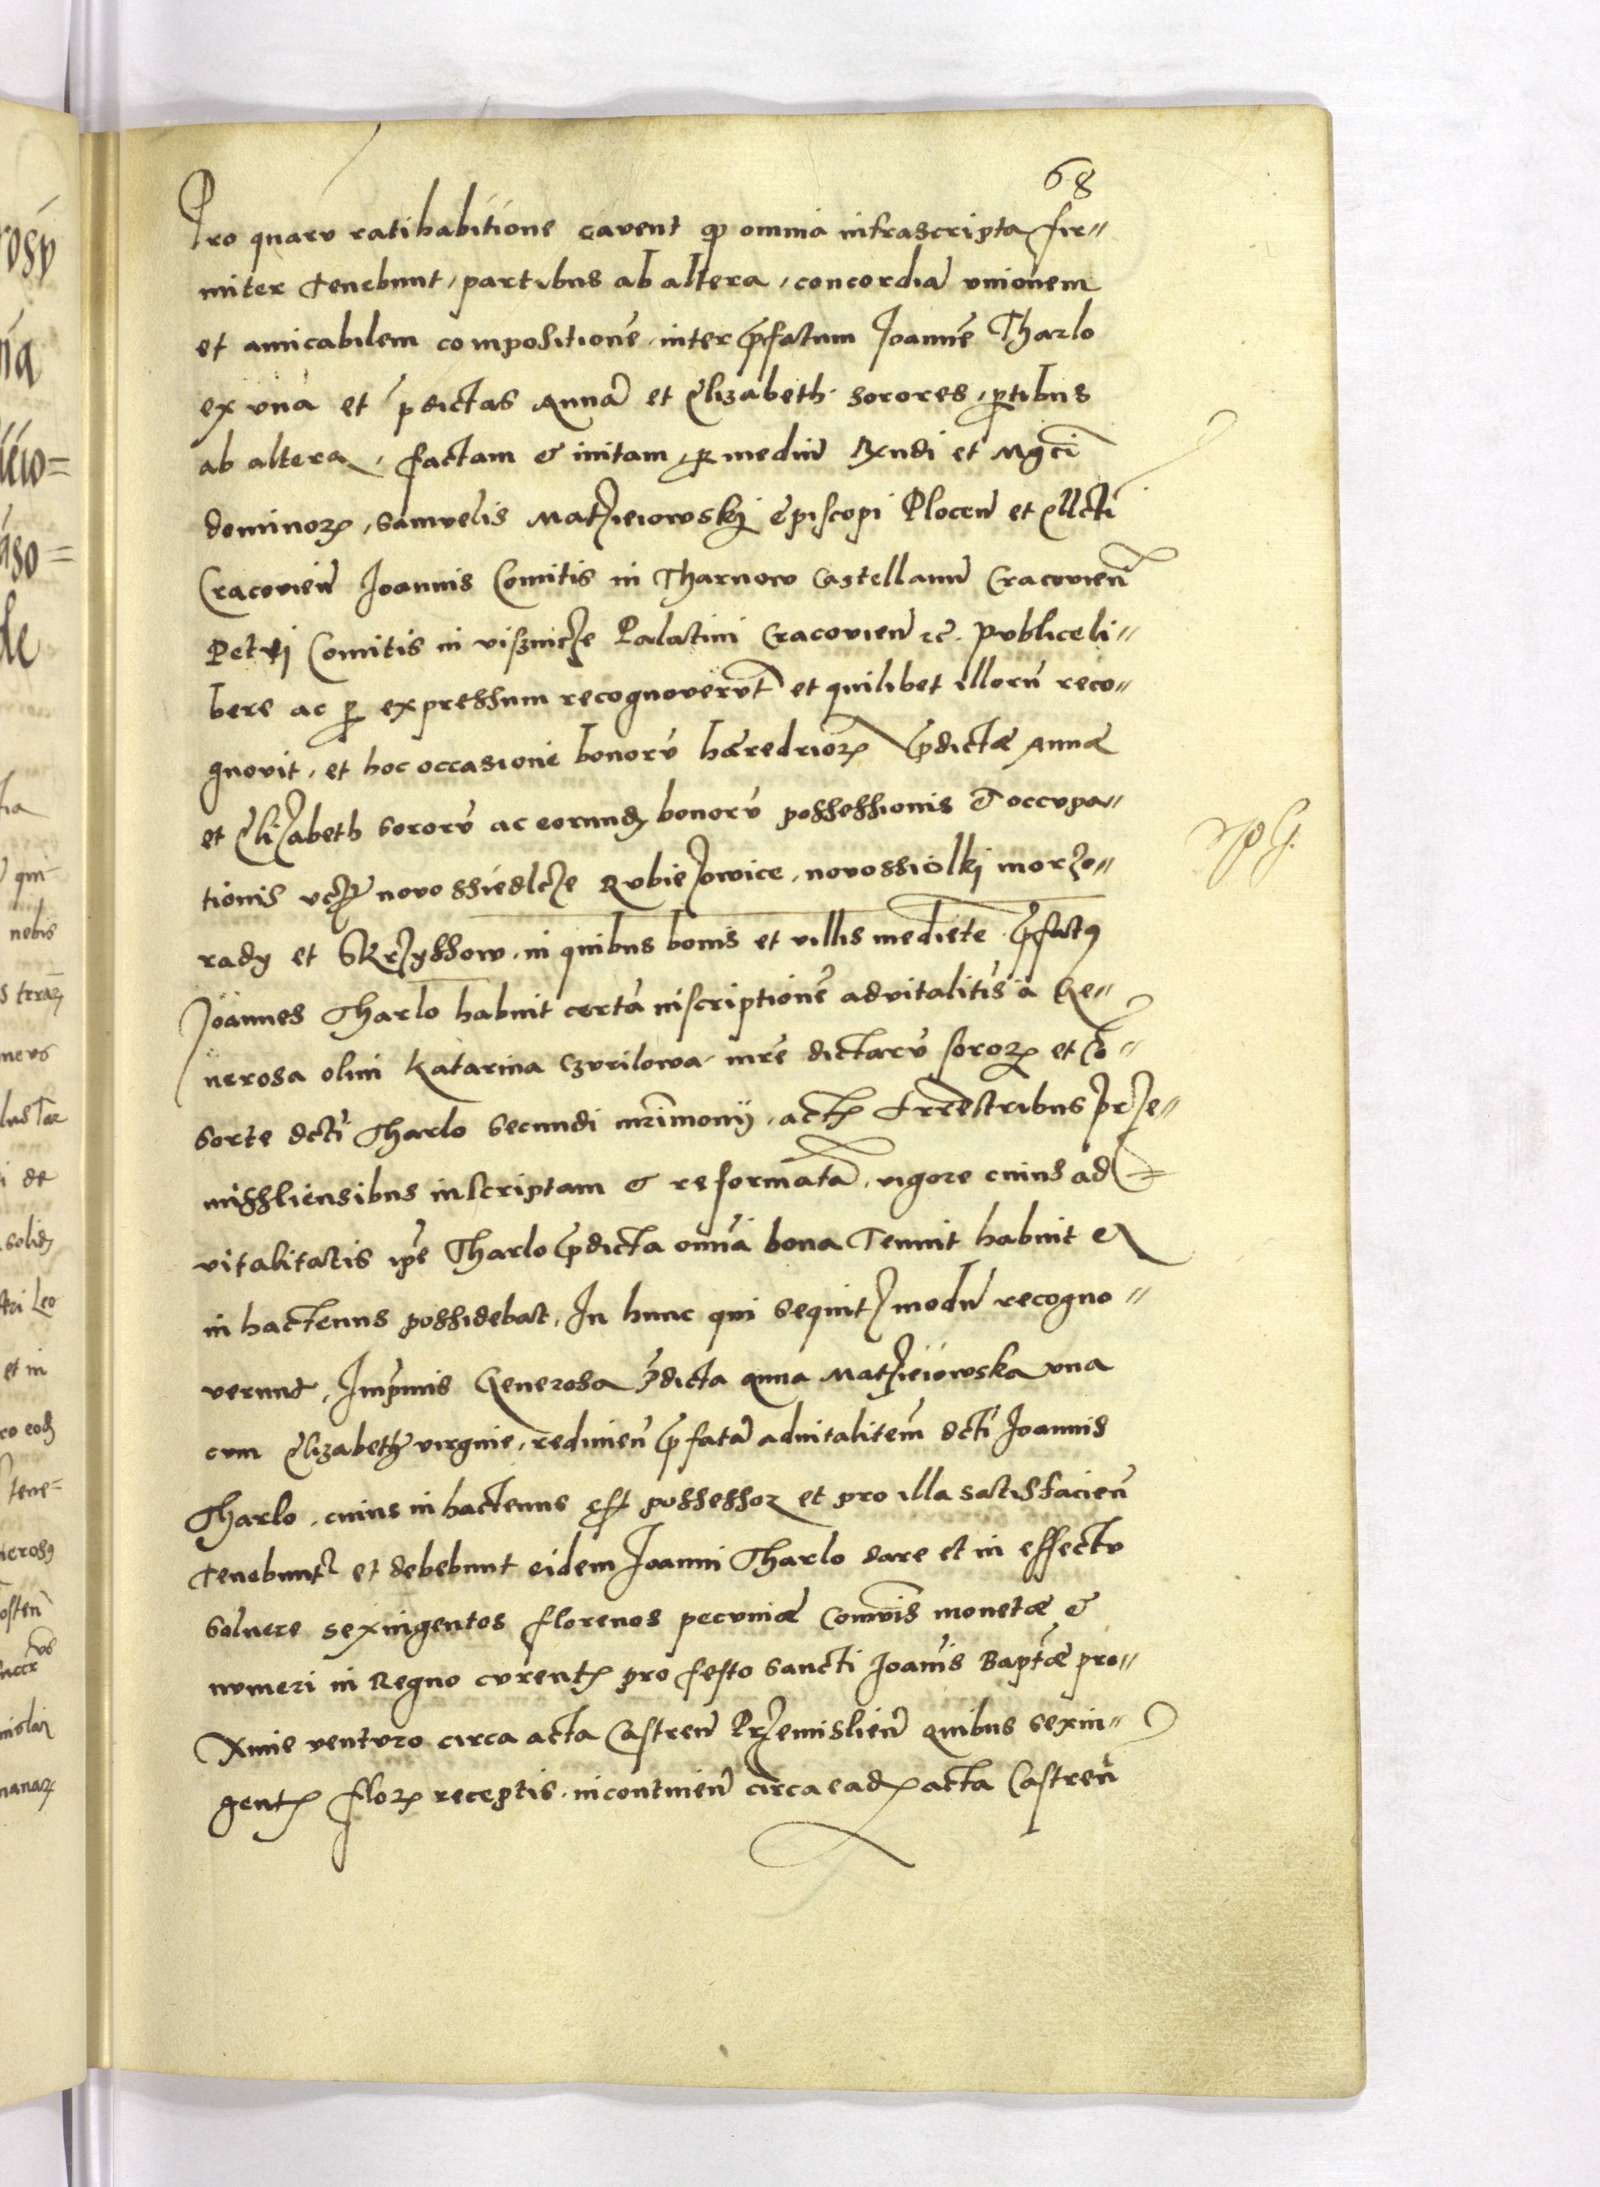 68
Pro quarũ ratihabitione cavent ꝙ omnia infrascripta fir=
miter tenebunt, partibus ab altera, concordiã unionem
et amicabilem compositionẽ inter p̃fatum Joannẽ Tharlo
ex una et p̃dictas Annã et Elizabeth sorores, ꝑtibus
ab altera, factam & initam, ꝑ mediũ Rx̃ndi et Mg̃ci
dominoꝝ, Samuelis Matzieiowskj Episcopi Plocen̄ et Ellcti
Cracovien̄ Joannis Comitis in Tharnow Castellanũ Cracovien̄
Petrj Comitis in Visznicze Palatini Cracovien̄ &c. publice li=
bere ac ꝑ expressum recognoverũt et quilibet illorũ reco=
gnovit, et hoc occasione bonorũ hæredrioꝝ p̃dictæ Annæ
et Elizabeth sororũ ac eorundẽ bonorũ possessionis & occupa=
tionis novossiedlcze Rubiezowice, novossiolki morzo=
rady et Skrzyssow, in quibus bonis et villis medietẽ p̃fatꝰ
Joannes Tharlo habuit certã inscriptionẽ advitalitĩs a Ge=
nerosa olim Katarina Czurilowa mr̃e dictarũ soroꝝ et cõ=
sorte dcti Tharlo secundi mr̃imonij, actꝭ trr̃estribus prze=
missliensibus inscriptam & reformatã, vigore cuius ad
vitalitatis ip̃e Tharlo p̃dicta omĩa bona tenuit habuit et
in hactenus possidebat, In hunc qui sequitꝛ modũ recogno=
verunt, Imp̃mis Generosa p̃dicta Anna Matzieiowska una
cum Elizabeth virgine, redimen̄ p̃fatã advitalitẽm dcti Joannis
Tharlo, cuius in hactenus est possessor et pro illa satisfacien̄
tenebuntꝛ et debebunt eidem Joanni Tharlo dare et in effectu
soluere sexingentos florenos pecuniæ com̃unis monetæ &
numeri in Regno curentꝭ pro festo Sancti Joañis Baptæ pro=
xime venturo circa acta Castren̄ Przemislien̄ quibus sexin=
gentꝭ floꝝ receptis, incontinen̄ circa eadꝭ acta Castren̄